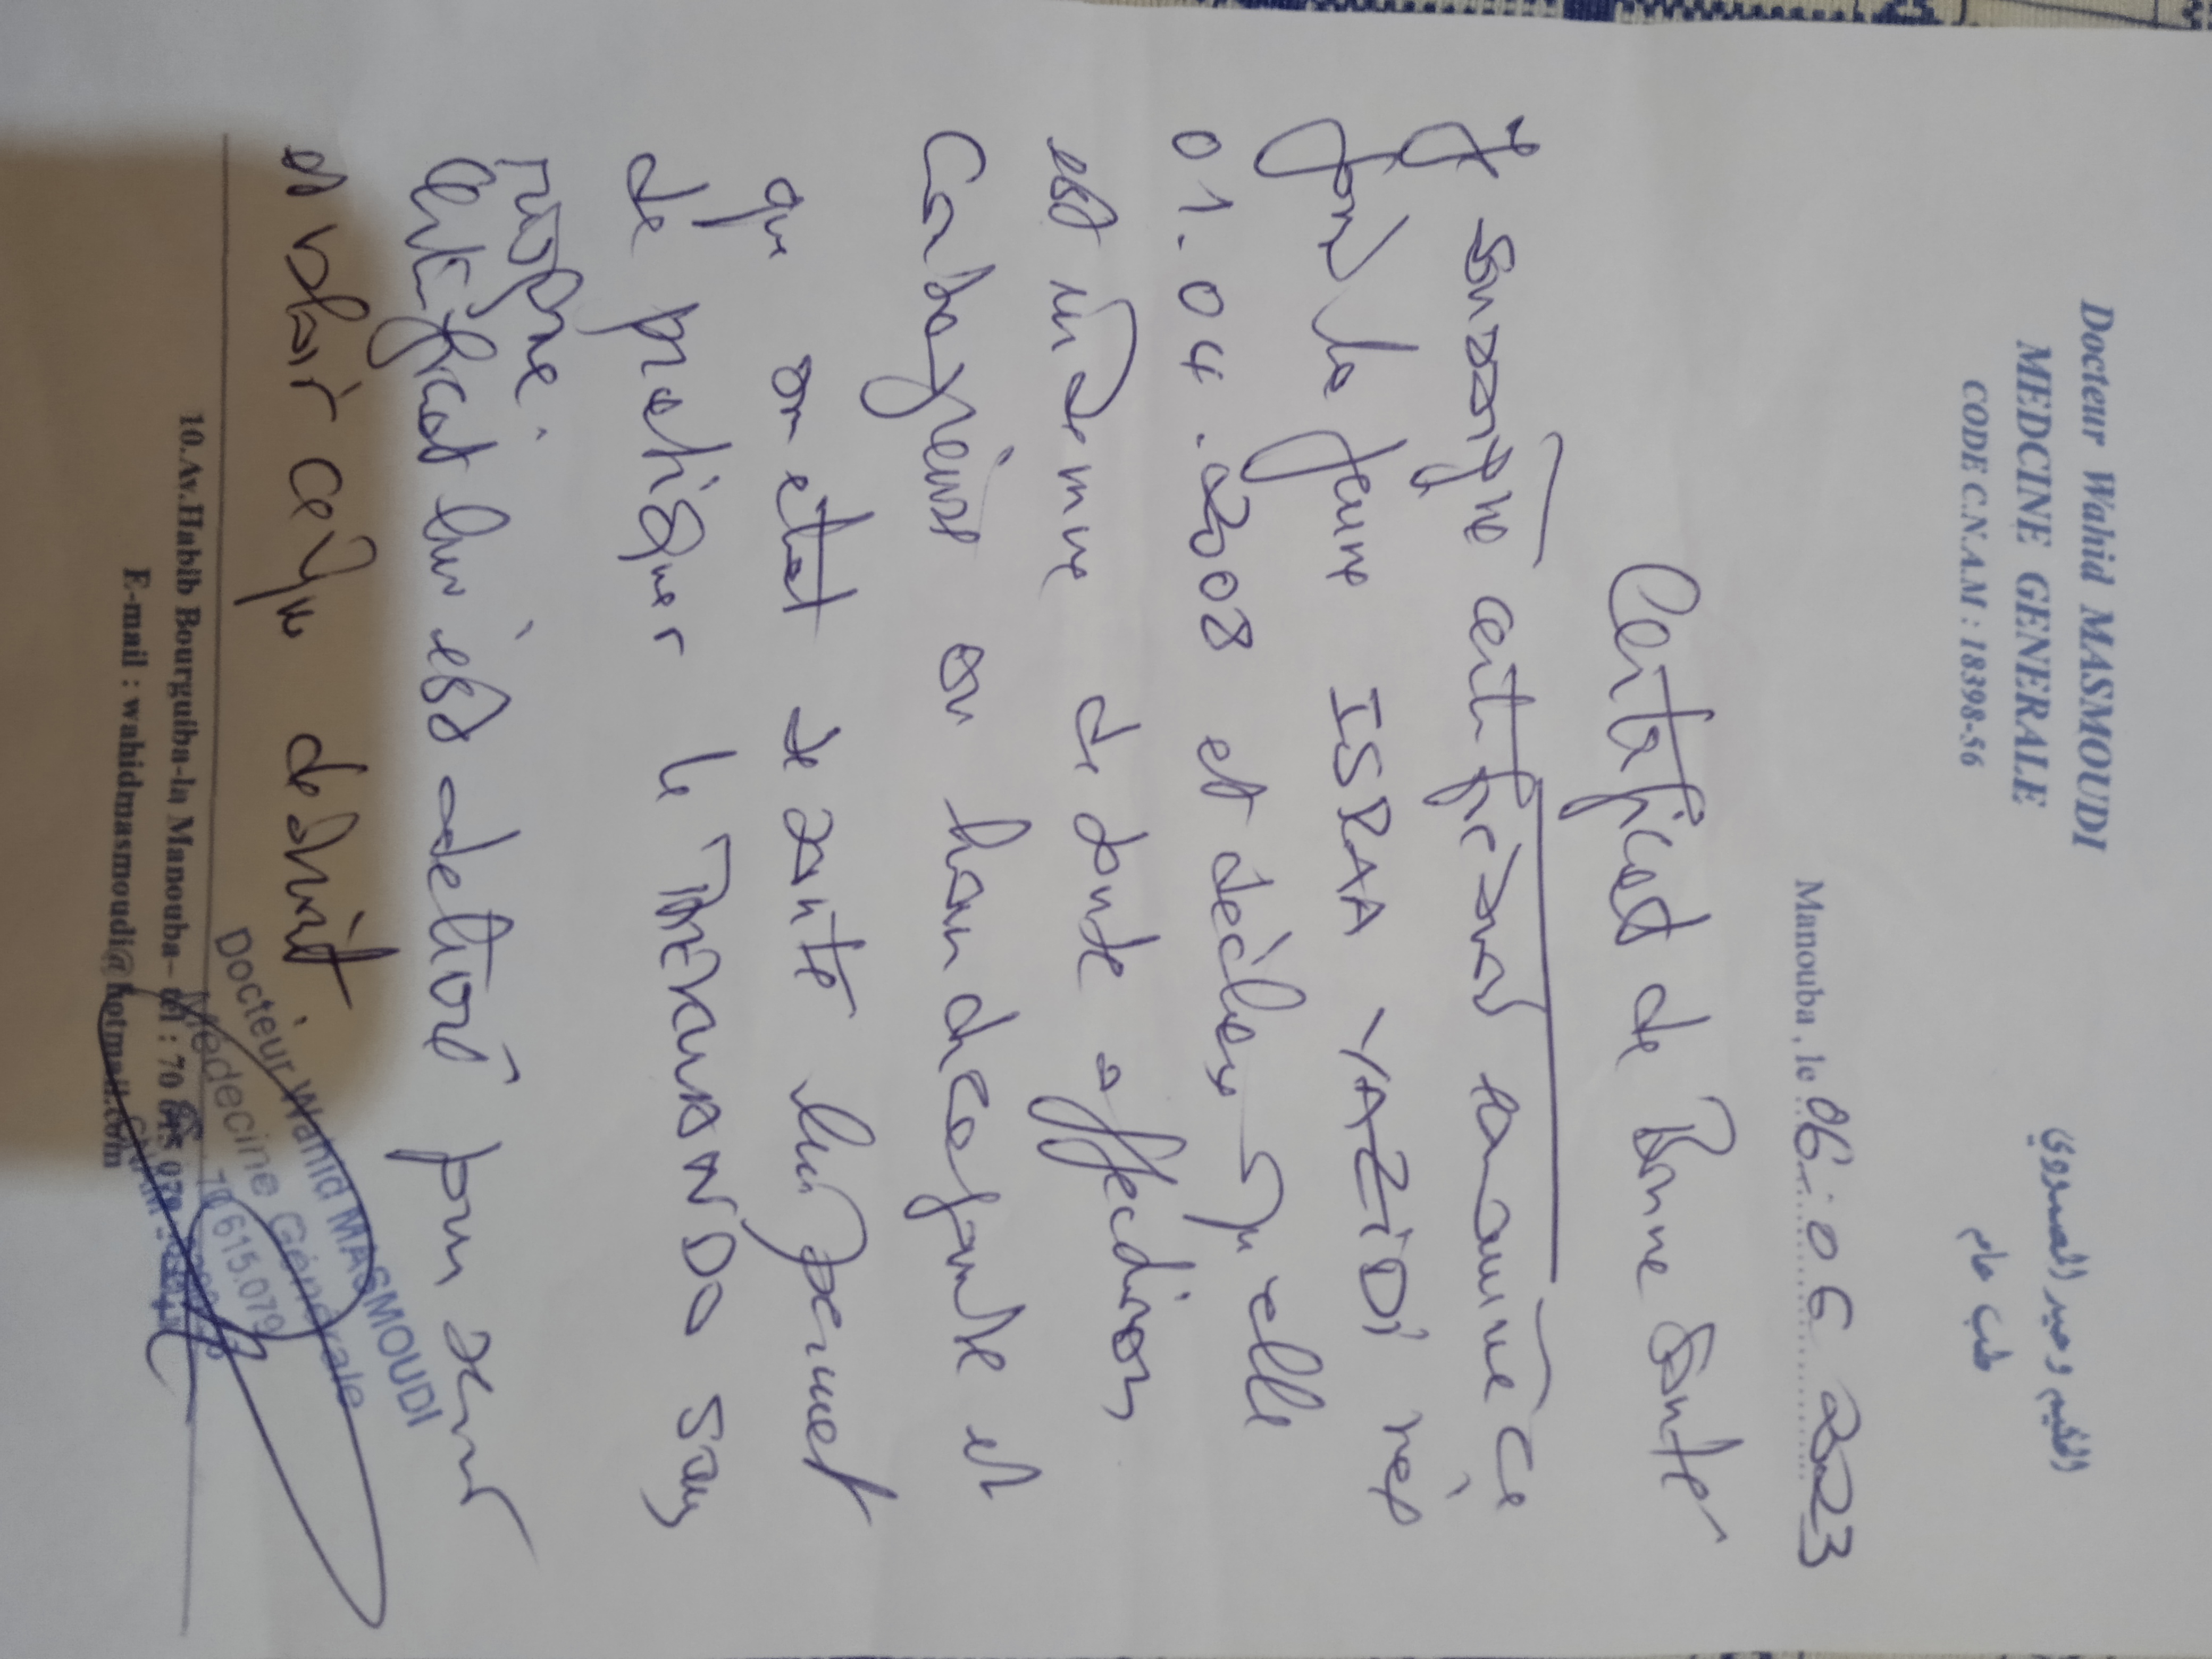 Docteur Wahid MASMOUDI
MEDCINE GENERALE
CODE C.N.A.M : 18398-56
الحكيم وحيد المصمودي
طب عام
Manouba, le 06.06 2023
Certificat de Bonne Santer
Je soussigné certifie avoir examiné ce
jour la jeune ISRAA YAZIDI née
01.04.2008 et déclare qu'elle
est indemne de toute affection
Contagieuse ou handicapante et
que son etat de santé lui permet
de pratiquer le TAEKWANDO sans
risque.
Certificat lui est delivré pour servir
et valoir ce que de droit
10.Av.Habib Bourguiba-la Manouba- tél : 70 615 079
E-mail : wahidmasmoudi@hotmail.com
Docteur Wahid MASMOUDI
Médecine Générale
70 615.079